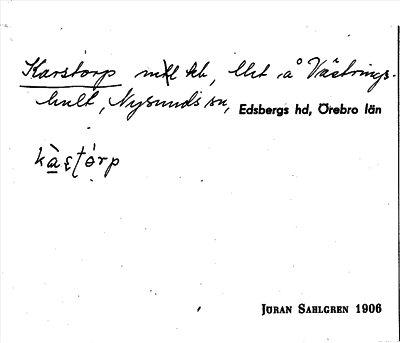 Karstorp lht å Västrings-
hult, Nysunds sn, Edsbergs hd, Örebro län
kàʂʈórp
JÖRAN SAHLGREN 1906